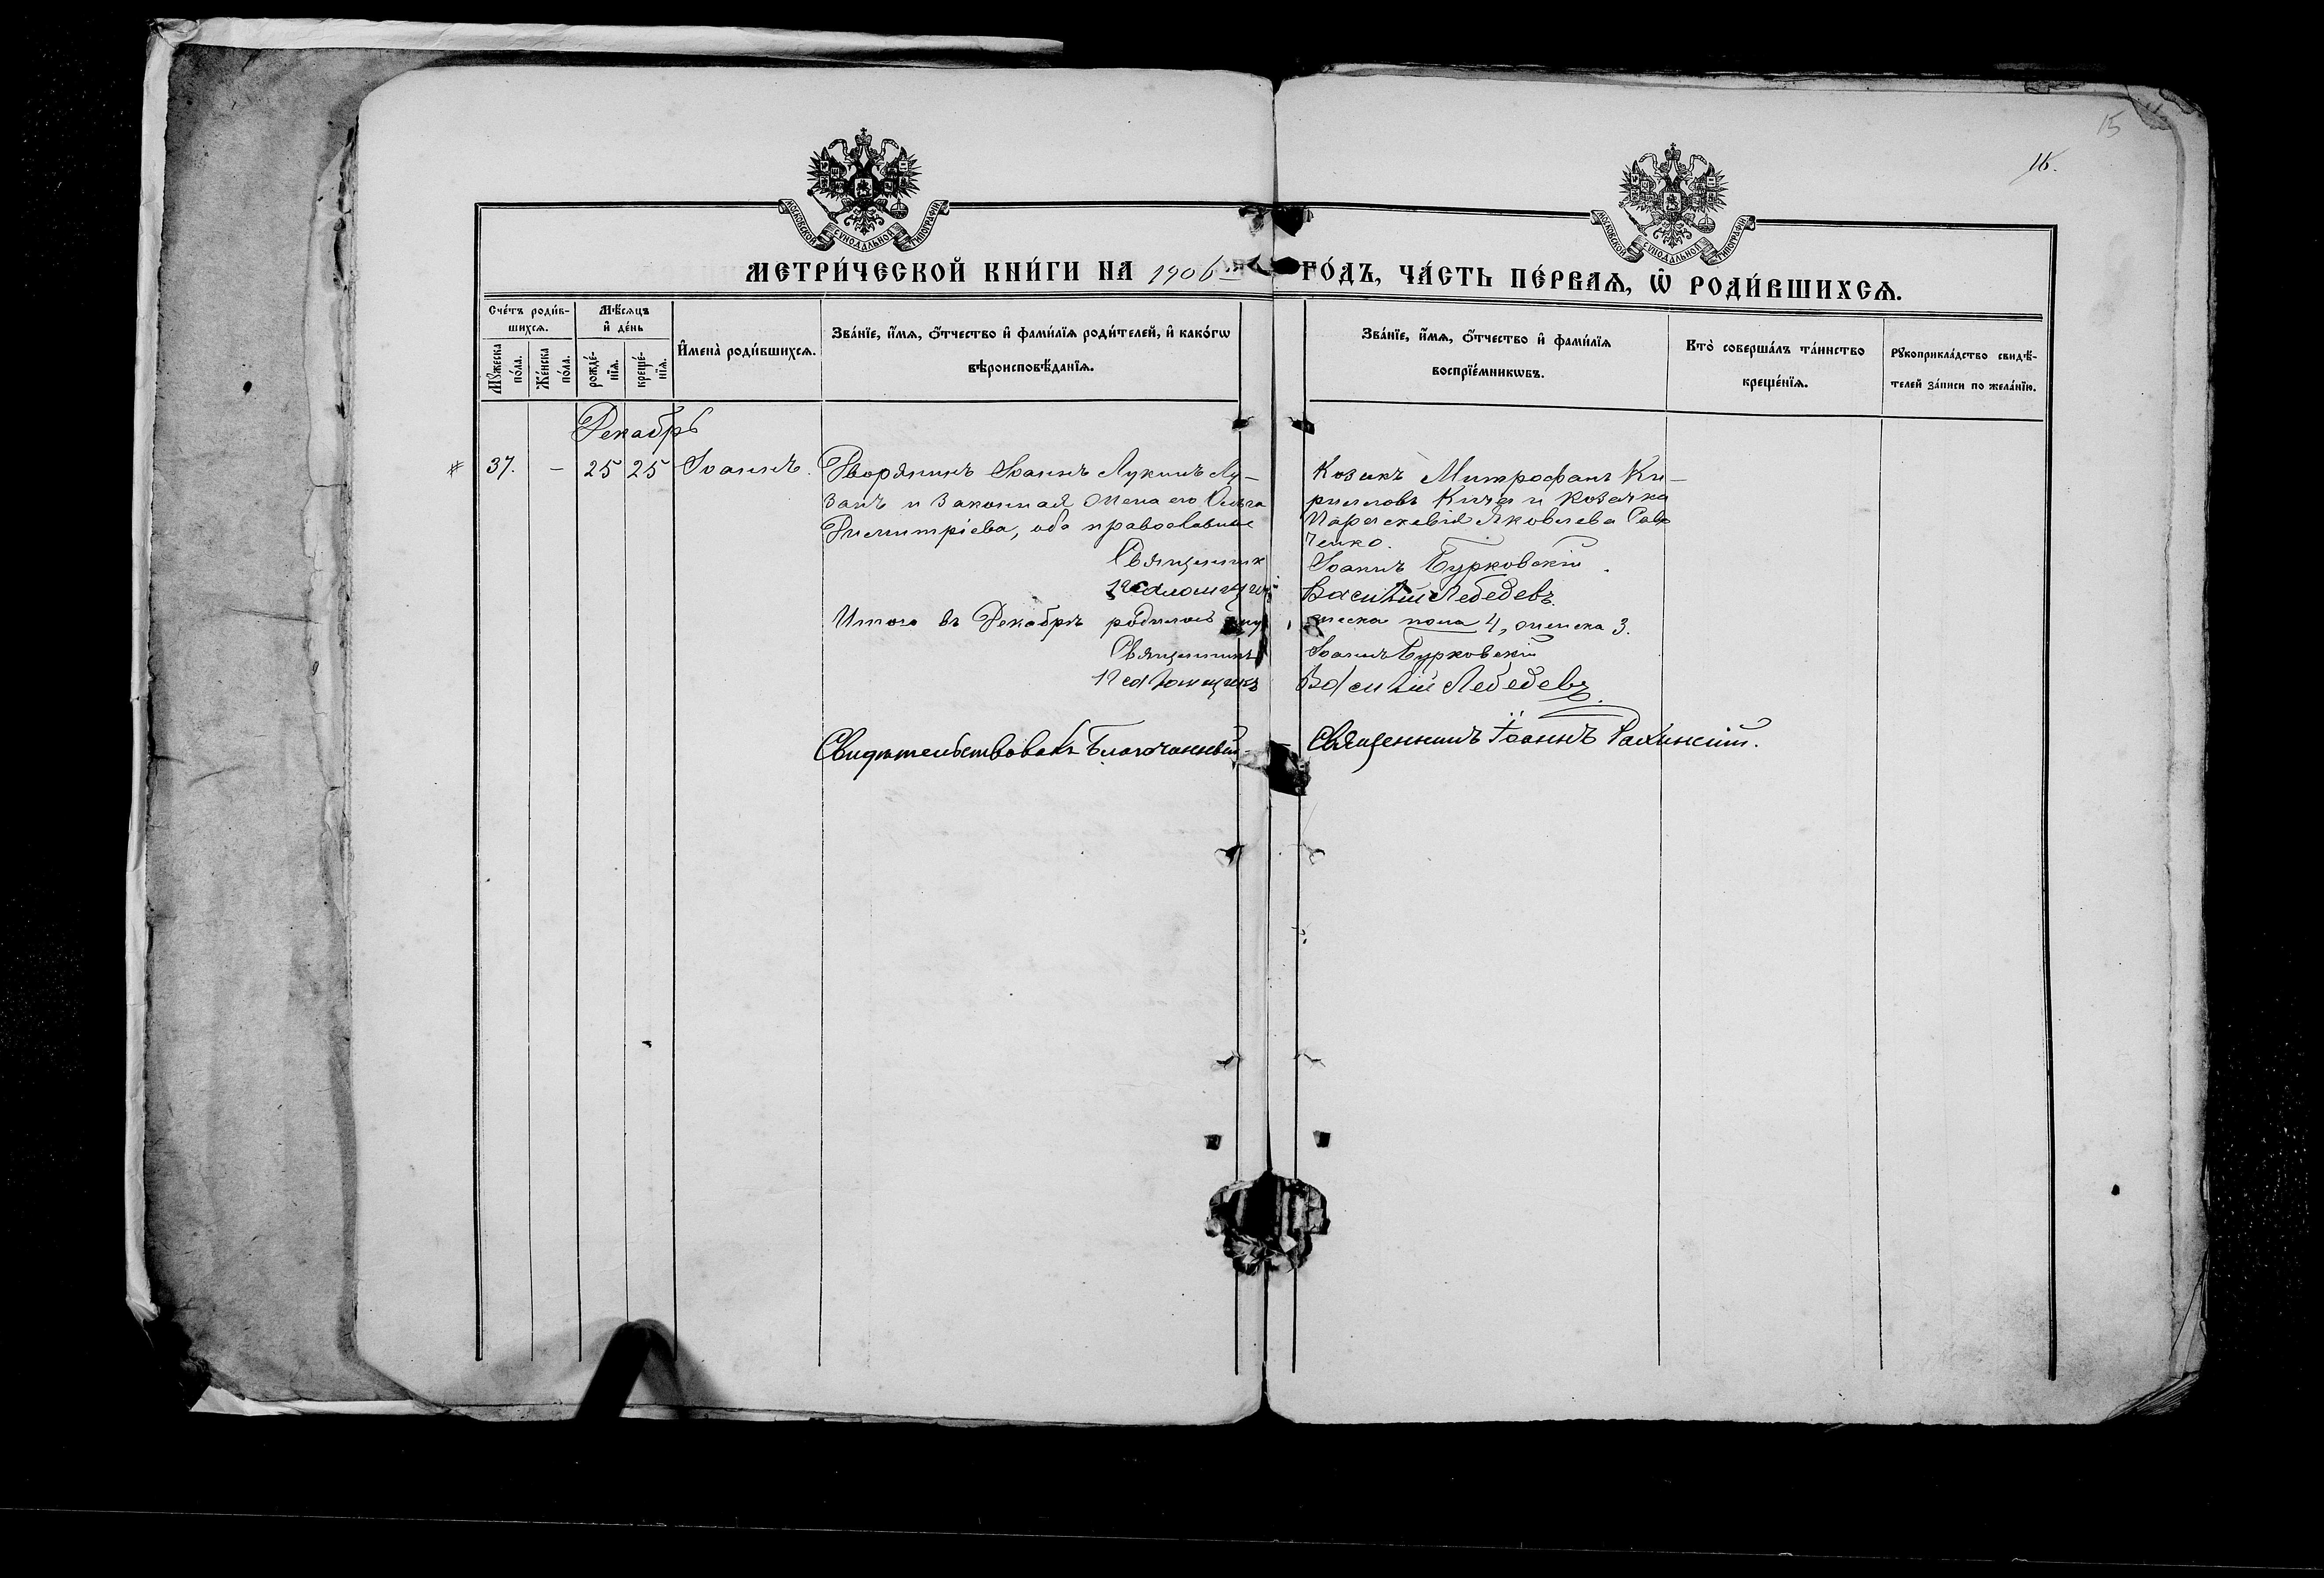 15
16.
МОСКОВСКОЙ СѴНОДАЛЬНОЙ ТИПОГРАФІИ
МОСКОВСКОЙ СѴНОДАЛЬНОЙ ТИПОГРАФІИ
МЕТРИ́ЧЕСКОЙ КНИ́ГИ НА 1906 ГО́ДЪ, ЧА́СТЬ ПЕ́РВАѦ, Ѡ҆ РОДИ́ВШИХСѦ.
Сче́тъ роди́в-
шихсѧ.
Мѣ́сѧцъ
и҆ де́нь
Мꙋ́жеска по́ла.
Же́нска по́ла.
рожде́-
нїѧ.
креще́-
нїѧ.
И҆мена̀ роди́вшихсѧ.
Зва́нїе, и҆́мѧ, ѻ҆́тчество и҆ фами́лїѧ роди́телей, и҆ како́гѡ
вѣроисповѣ́данїѧ.
Зва́нїе, и҆́мѧ, ѻ҆́тчество и҆ фами́лїѧ
воспрїе́мникѡвъ.
Кто̀ соверша́лъ та́инство
креще́нїѧ.
Рꙋкоприкла́дство свидѣ́-
телей за́писи по жела́нїю.
Декабрь
37. – 25 25 Іоаннъ. Дворянинъ Іоаннъ Лукинъ Лу-
занъ и законная жена его Ольга
Димитріева, оба православные
Козакъ Митрофанъ Ки-
рилловъ Кича и козачка
Параскевія Яковлева Сав
ченко.
Священник Іоаннъ Бурковскій.
Псаломщик Василій Лебедевъ.
Итого въ Декабрѣ родилось мужеска пола 4, женска 3.
Священникъ Іоаннъ Бурковскій
Псаломщикъ Василій Лебедевъ.
Свидѣтельствовалъ Благочинный Священникъ Іоаннъ